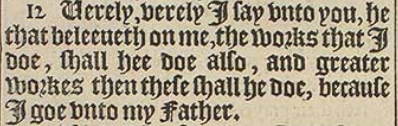 12 Uerely, verely I say vnto you, he
that beleeueth on me, the works that I
doe, shall hee doe also, and greater
workes then these shall he doe, because
I goe vnto my Father.